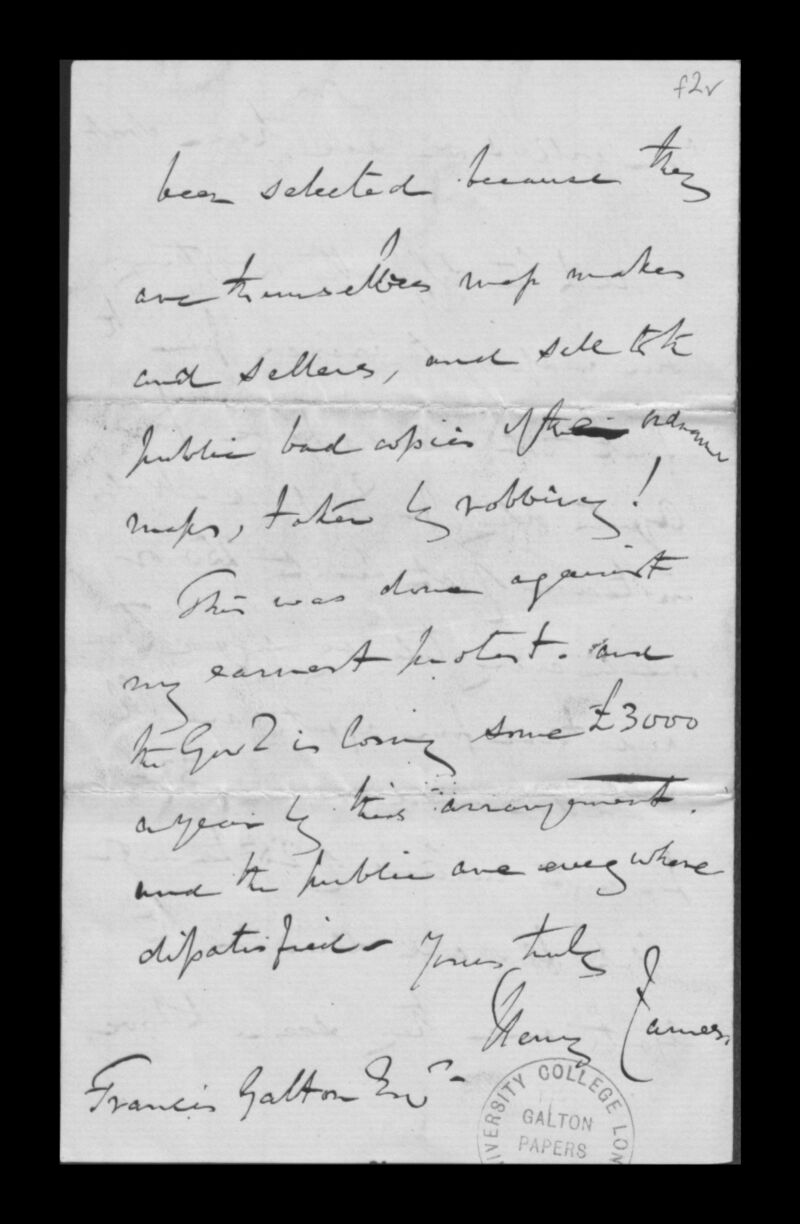 f2v
been selected because they
are themselves map makers
and sellers, and sell to the
public bad copies of the ordnance
maps, taken by robbery!
This was done against
my earnest protest. and
the Govt is losing some £3000
a year by this arrangement.
and the public are every where
dissatisfied – Yours truly
Henry James
Francis Galton Esqr
UNIVERSITY COLLEGE LON
GALTON
PAPERS